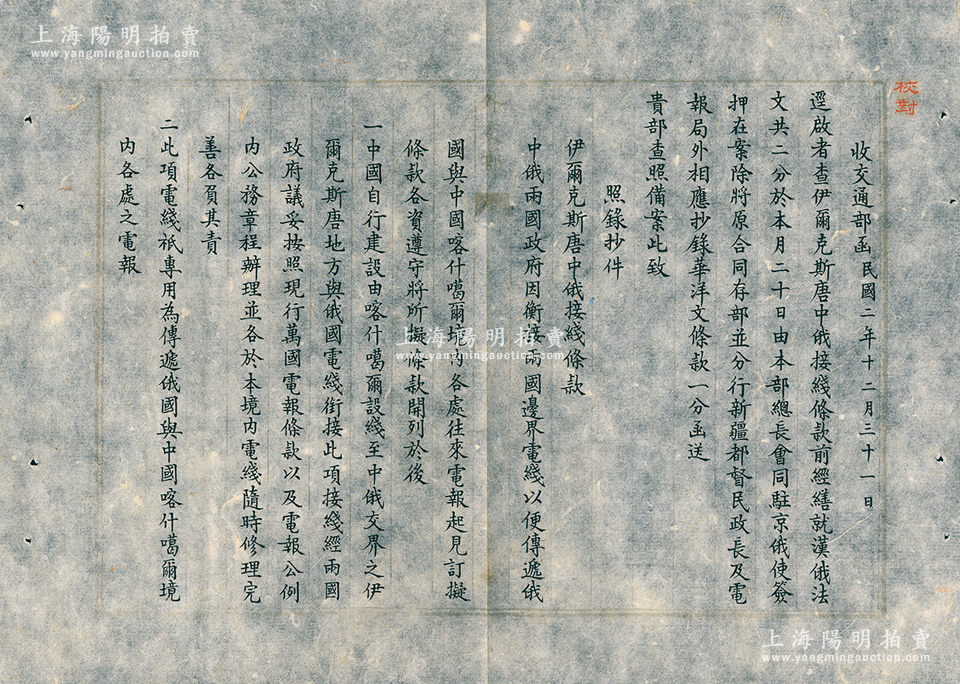 校對
收交通部函民國二年十二月三十一日
逕啟者查伊爾克斯唐中俄接綫條款前經繕就漢俄法
文共二分於本月二十日由本部總長會同駐京俄使簽
押在案除將原合同存部並分行新疆都督民政長及電
報局外相應抄錄華洋文條款一分函送
貴部查照備案此致
照錄抄件
伊爾克斯唐中俄接綫條款
中俄兩國政府因銜接兩國邊界電綫以便傳遞俄
國與中國喀什噶爾境內各處往來電報起見訂擬
條款各資遵守將所擬條款開列於後
一中國自行建設由喀什噶爾設綫至中俄交界之伊
爾克斯唐地方與俄國電綫銜接此項接綫經兩國
政府議妥按照現行萬國電報條款以及電報公例
內公務章程辦理並各於本境內電綫隨時修理完
善各負其責
二此項電綫祇專用為傳遞俄國與中國喀什噶爾境
內各處之電報
上海陽明拍賣
www.yangmingauction.com
上海陽明拍賣
www.yangmingauction.com
上海陽明拍賣
www.yangmingauction.com